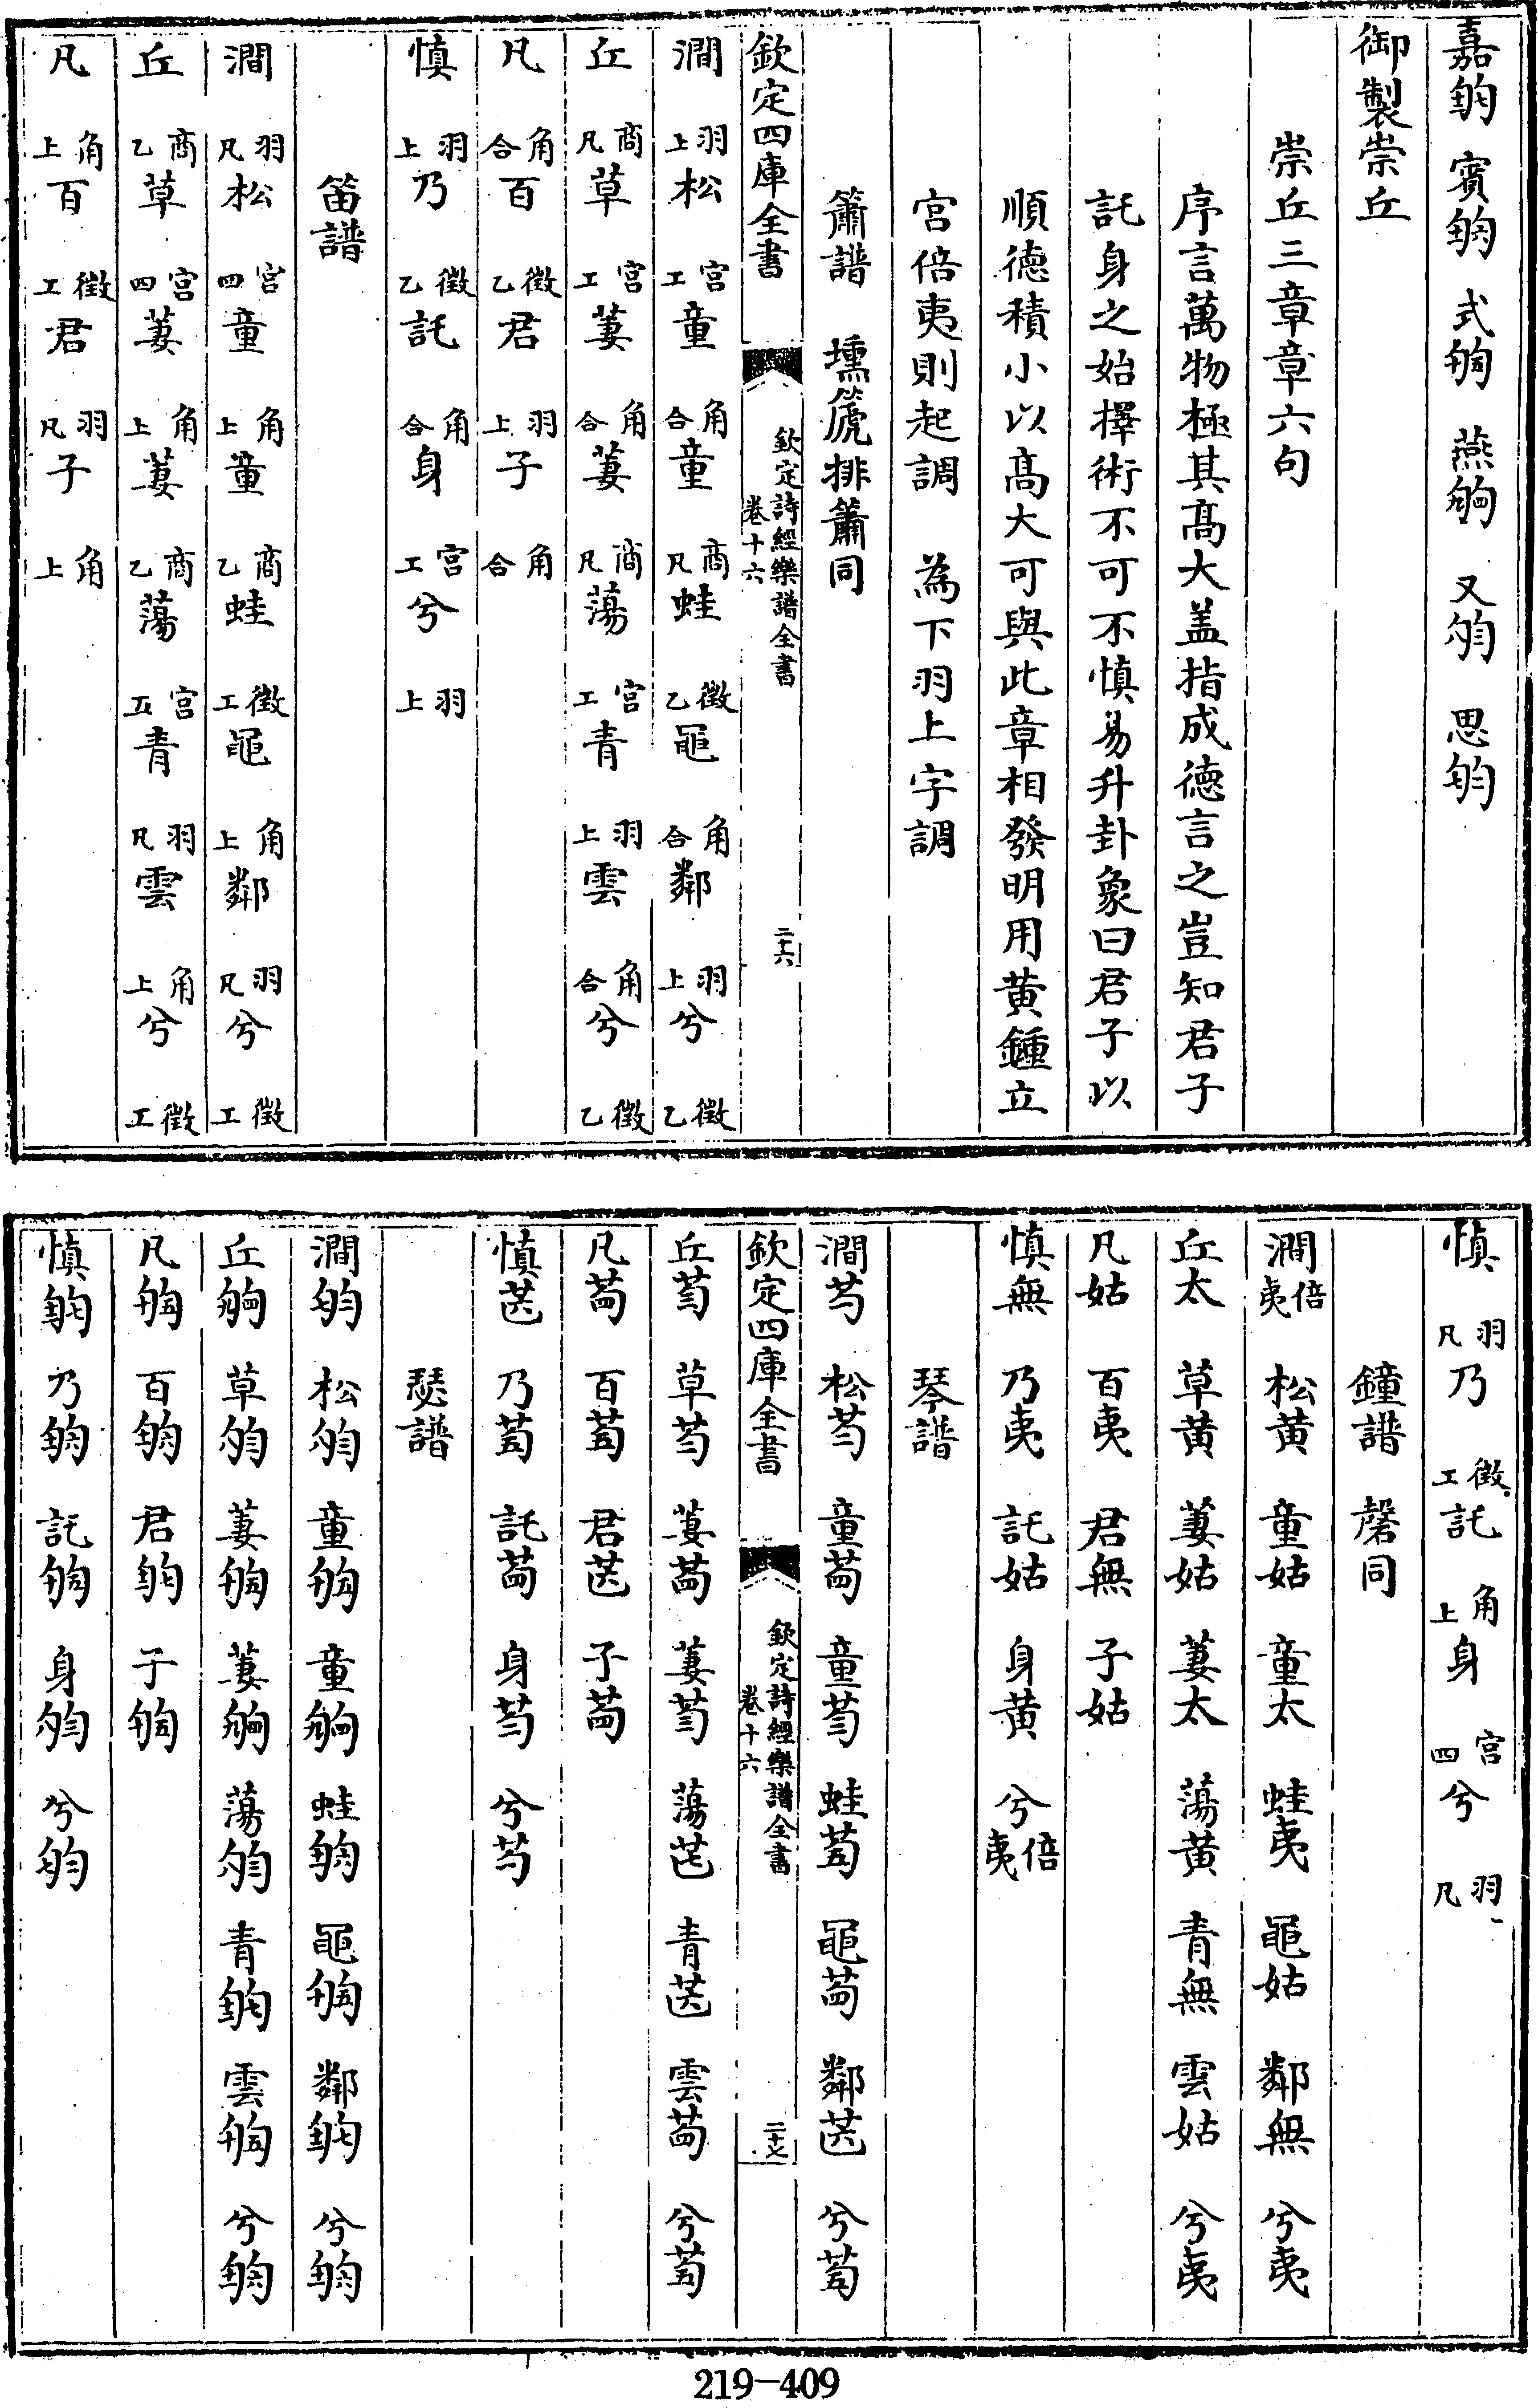 嘉 賓 式 燕 又 思
御製崇丘
崇丘三章章六句
序言萬物極其髙大盖指成徳言之豈知君子
託身之始擇術不可不慎易升卦象曰君子以
順徳積小以髙大可與此章相發明用黄鍾立
宫倍夷則起調 為下羽上字調
簫譜 壎篪排簫同
欽定四庫全書 欽定詩經樂譜全書 卷十六 二十六
澗羽上 松宫工 童角合 童商凡 蛙徵乙 黽角合 鄰羽上 兮徵乙
丘商凡 草宫工 萋角合 萋商凡 蕩宫工 青羽上 雲角合 兮徵乙
凡角合 百徵乙 君羽上 子角合
慎羽上 乃徵乙 託角合 身宫工 兮羽上
笛譜
澗羽凡 松宫四 童角上 童商乙 蛙徵工 黽角上 鄰羽凡 兮徵工
丘商乙 草宫四 萋角上 萋商乙 蕩宫五 青羽凡 雲角上 兮徵工
凡角上 百徵工 君羽凡 子角上
慎羽凡 乃徵工 託角上 身宫四 兮羽凡
鐘譜 磬同
澗倍夷 松黄 童姑 童太 蛙夷 黽姑 鄰無 兮夷
丘太 草黄 萋姑 萋太 蕩黄 青無 雲姑 兮夷
凡姑 百夷 君無 子姑
慎無 乃夷 託姑 身黄 兮倍夷
琴譜
澗 松 童 童 蛙 黽 鄰 兮
欽定四庫全書 欽定詩經樂譜全書 卷十六 二十七
丘 草 萋 萋 蕩 青 雲 兮
凡 百 君 子
慎 乃 託 身 兮
瑟譜
澗 松 童 童 蛙 黽 鄰 兮
丘 草 萋 萋 蕩 青 雲 兮
凡 百 君 子
慎 乃 託 身 兮
219-409